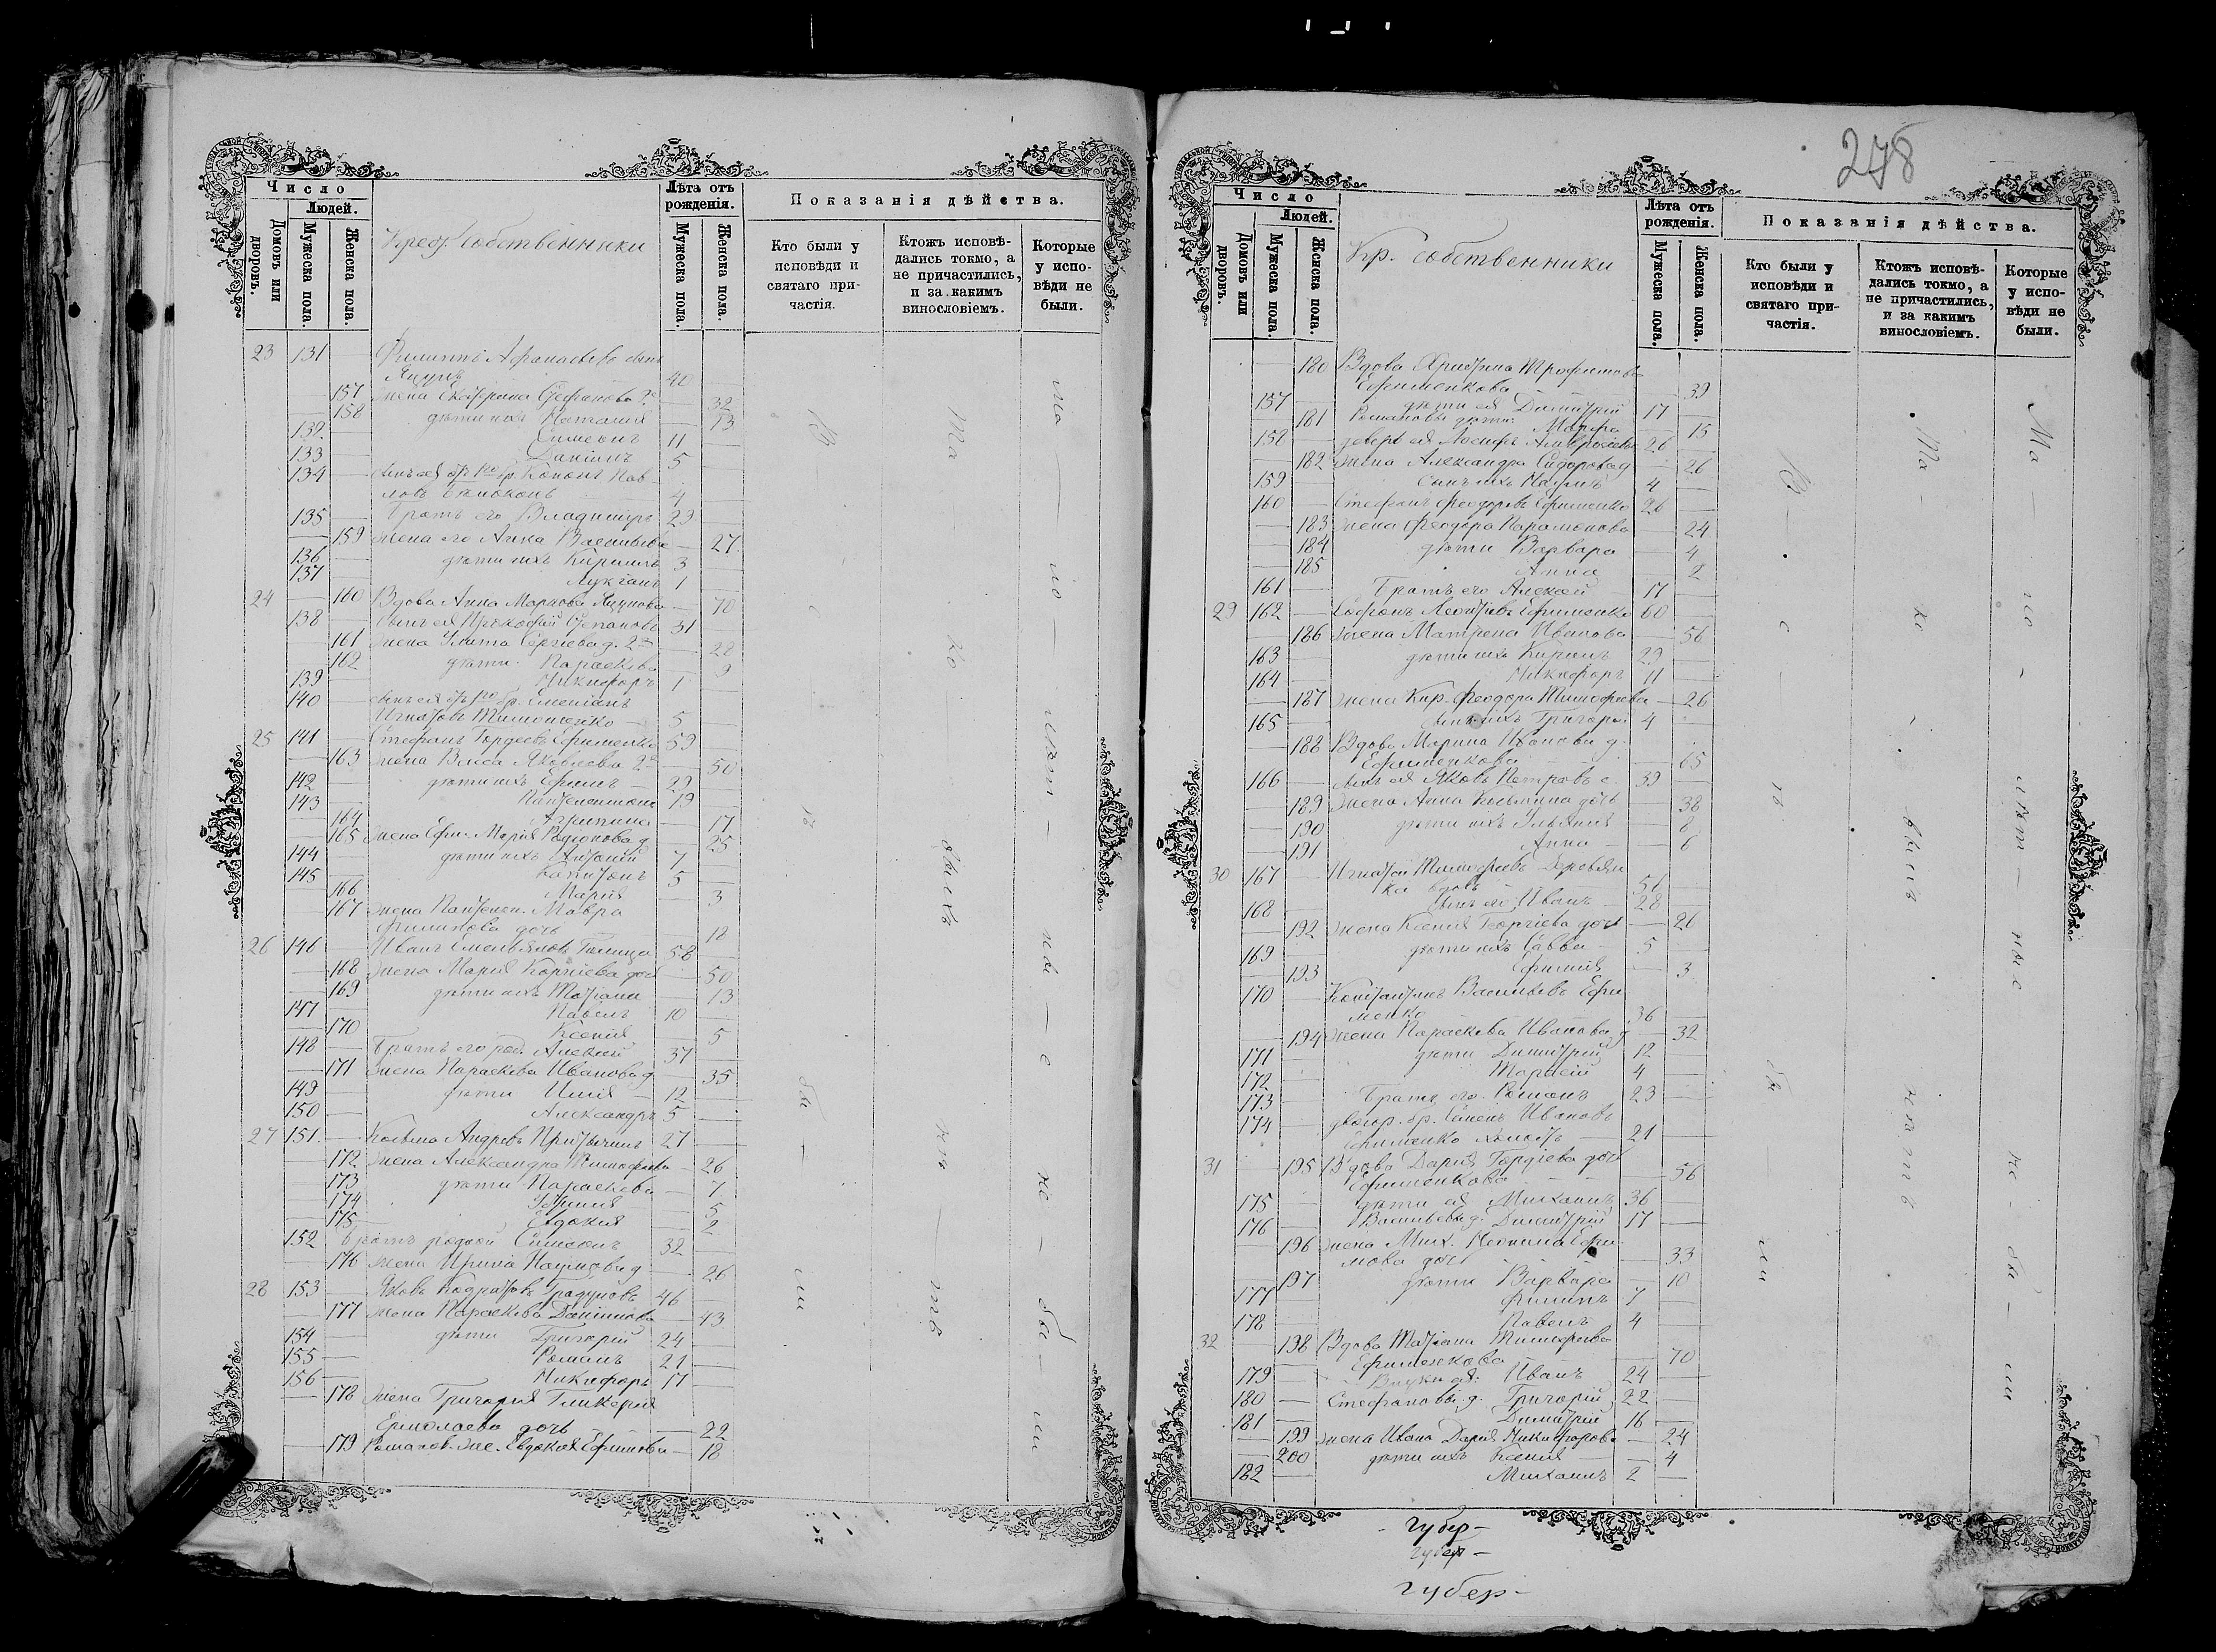 278
Число
Людей.
Домовъ или дворовъ.
Мужеска пола.
Женска пола.
Крест. Собственники
Лѣта отъ рожденія.
Мужеска пола.
Женска пола.
Показанія дѣйства.
Кто были у исповѣди и святаго причастія.
Ктожъ исповѣдались токмо, а не причастились, и за какимъ винословіемъ.
Которые у исповѣди не были.
23 131 Филиппъ Афанасьевъ сынъ
40
157 жена Екатерина Стефанова 32
158 дѣти ихъ Наталія 13
132 Симеонъ 11
133 Даніилъ 5
134 Кононъ Пав
ловъ 4
135 Братъ его Владимиръ 29
159 жена его Анна Васильева 27
136 дѣти ихъ Кириллъ 3
137 Лукіанъ 1
24 160 Вдова Анна Маркова 70
138 сынъ ея Прокофій Степановъ 31
161 жена Улита Сергіева д. 28
162 дѣти Параскева 9
139 Никифоръ 1
140 Емеліанъ
Игнатовъ Тимошенко 5
25 141 Стефанъ Гордеевъ Ефименко 59
163 жена Васса Яковлева 50
142 дѣти ихъ Ефимъ 29
143 Пантелеимонъ 19
164 Агрипина 17
165 жена Ефим. Марія Родіонова д. 25
144 дѣти ихъ Антоній 7
145 Капитонъ 5
166 Марія 3
167 жена Пантелеи. Мавра
Филипова дочь 18
26 146 Иванъ Емельяновъ Голица 58
168 жена Марія Корніева дочь 50
169 дѣти ихъ Татіана 13
147 Павелъ 10
170 Ксенія 5
148 Братъ его род. Алексій 37
171 жена Параскева Иванова д. 35
149 дѣти Илія 12
150 Александръ 5
27 151 Козьма Андреевъ 27
172 жена Александра Тимофеева 26
173 дѣти Параскева 7
174 5
175 Евдокія 2
152 Братъ родной Симеонъ 32
176 жена Ирина Наумова д. 26
28 153 Яковъ Кодратовъ 46
177 жена Параскева Даніилова 43
154 дѣти Григорій 24
155 Романъ 21
156 Никифоръ 17
178 жена Григорія Гликерія
Ермолаева дочь 22
179 Романов. же. Евдокія Ефимова 18
Число
Людей.
Домовъ или дворовъ.
Мужеска пола.
Женска пола.
Кр. собственники
Лѣта отъ рожденія.
Мужеска пола.
Женска пола.
Показанія дѣйства.
Кто были у исповѣди и святаго причастія.
Ктожъ исповѣдались токмо, а не причастились, и за какимъ винословіемъ.
Которые у исповѣди не были.
180 Вдова Христина Трофимова
Ефименкова 39
157 дѣти ея Димитрій 17
181 Романовы дѣти: Марфа 15
158 деверь ея Іосифъ Амвросіевъ 26
182 жена Александра Сидорова д 26
159 сынъ ихъ Наумъ 4
160 Стефанъ Феодоровъ Ефименко 26
183 жена Феодора Парамонова 24
184 дѣти Варвара 4
185 Анна 2
161 Братъ его Алексей 17
29 162 Софронъ Леонтіевъ Ефименко 60
186 жена Матрена Иванова 56
163 дѣти ихъ Кирилъ 29
164 Никифоръ 11
187 жена Кир. Феодора Тимофеева 26
165 сынъ ихъ Григорій 4
188 Вдова Марина Иванова д.
Ефименкова 65
166 сынъ ея Яковъ Петровъ с. 39
189 жена Анна Козьмина дочь 38
190 дѣти ихъ Ульянія 8
191 Анна 6
30 167 Игнатій Тимофеевъ Деревян
ка вдов. 56
168 сынъ его Иванъ 28
192 жена Ксенія Георгіева дочь 26
169 дѣти ихъ Савва 5
193 Ефимія 3
170 Константинъ Васильевъ Ефи
менко 36
194 жена Параскева Иванова д. 32
171 дѣти Димитрій 12
172 4
173 Братъ его Романъ 23
174 двоюр. бр. Семенъ Ивановъ
Ефименко холостъ 21
31 195 Вдова Дарія Гордіева дочь
Ефименкова 56
175 дѣти ея Михаилъ 36
176 Васильевы д. Димитрій 17
196 жена Мих. Неонила Ефи
мова дочь 33
197 дѣти Варвара 10
177 Филипъ 7
178 Павелъ 4
32 198 Вдова Татіана Тимофеева
Ефименкова 70
179 Внуки ея Иванъ 24
180 Стефановы д. Григорій 22
181 Димитрій 16
199 жена Ивана Дарія Никифорова 24
200 дѣти ихъ Ксенія 4
182 Михаилъ 2
- губер -
губер -
губер -